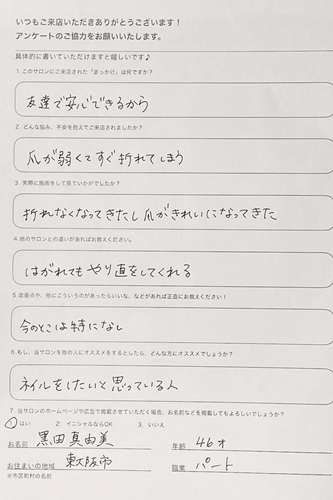 いつもご来店いただきありがとうございます！
アンケートのご協力をお願いいたします。
具体的に書いていただけますと嬉しいです♪
1.このサロンにご来店された「きっかけ」は何ですか？
友達で安心できるから
2. どんな悩み、不安を抱えてご来店されましたか？
爪が弱くてすぐ折れてしまう
3. 実際に施術をして見ていかがでしたか？
折れなくなってきたし爪がきれいになってきた
4.他のサロンとの違いがあればお教えください。
はがれてもやり直をしてくれる
5.改善点や、他にこういうのがあったらいいな、などがあれば正直にお教えください！
今のとこは特になし
6.もし、当サロンを他の人にオススメをするとしたら、どんな方にオススメでしょうか？
ネイルをしたいと思っている人
7. 当サロンのホームページや広告で掲載させていただく場合、お名前などを掲載してもよろしいでしょうか？
1 はい 2 イニシャルならOK 3. いいえ
お名前 黒田真由美 年齢 46才
お住まいの地域 東大阪市 職業 パート
※市区町村の名前